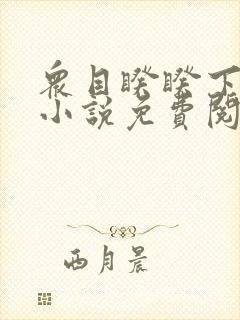 衆目睽睽下
小說免費閱
西月晨